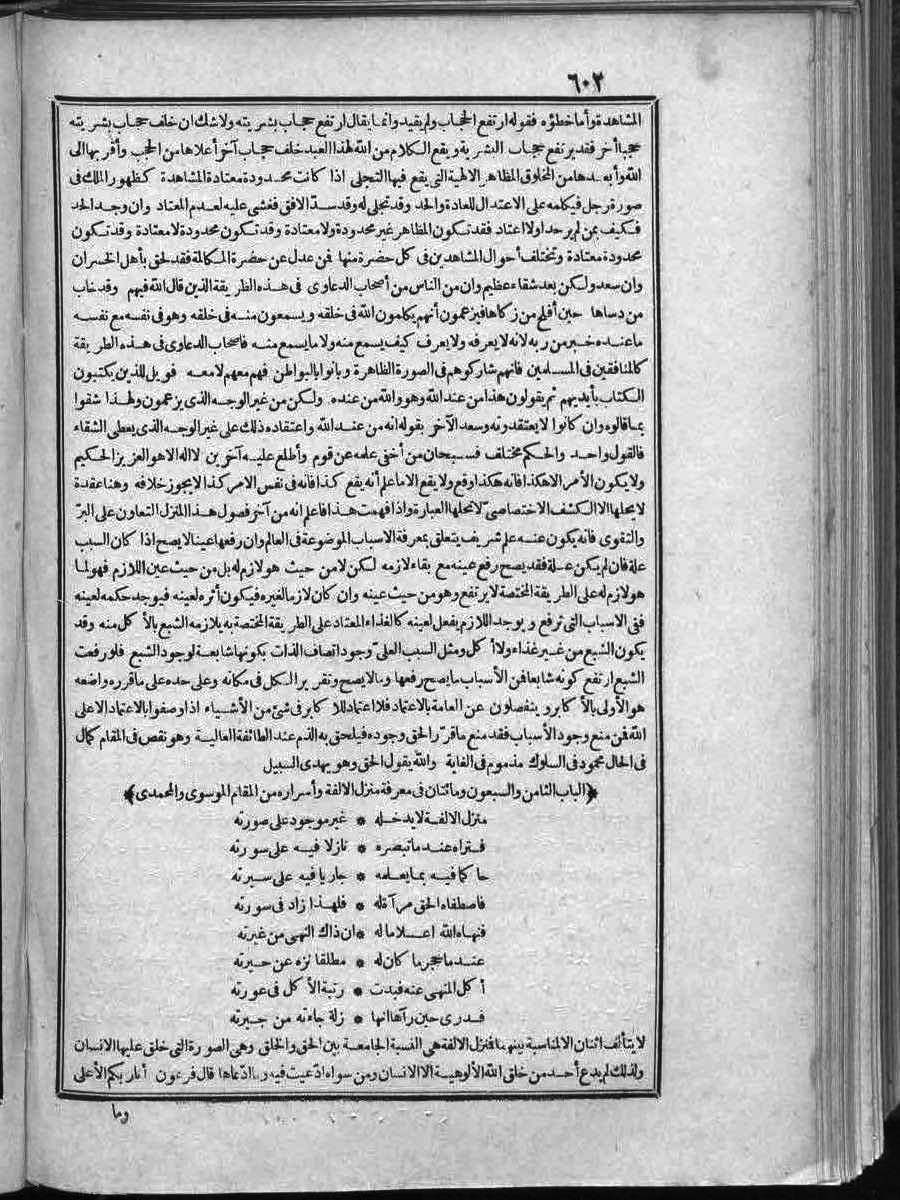 ٦٠٢
المشاهدة وأما خطؤه فقوله ارتفع الحجاب ولم يقيد وانما يقال ارتفع حجاب بشريته ولا شك ان خلف حجاب بشريته
حجبا أخر فقد يرتفع حجاب البشرية ويقع الكلام من الله لهذا العبد خلف حجاب آخر أعلاها من الحجب وأقربها الى
الله وأبعدها من المخلوق المظاهر الالهية التي يقع فيها التجلي اذا كانت محدودة معتادة المشاهدة كظهور الملك في
صورة رجل فيكلمه على الاعتدال للعادة والحد وقد تجلى له وقد سد الافق فغشى عليه لعدم المعتاد وان وجد الحد
فكيف بمن لم ير حدا ولا اعتاد فقد تكون المظاهر غير محدودة ولا معتادة وقد تكون محدودة لا معتادة وقد تكون
محدودة معتادة وتختلف أحوال المشاهدين في كل حضرة منها فمن عدل عن حضرة المكالمة فقد لحق بأهل الخسران
وان سعد ولكن بعد شقاء عظيم وان من الناس من أصحاب الدعاوى في هذه الطريقة الذين قال الله فيهم وقد خاب
من دساها حين أفلح من زكاها فيزعمون أنهم يكلمون الله في خلقه ويسمعون منه في خلقه وهو في نفسه مع نفسه
ما عنده خبر من ربه لانه لا يعرفه ولا يعرف كيف يسمع منه ولا ما يسمع منه فاصحاب الدعاوى في هذه الطريقة
كالمنافقين في المسلمين فانهم شاركوهم في الصورة الظاهرة وبانوا بالبواطن فهم معهم لا معه فويل للذين يكتبون
الكتاب بأيديهم ثم يقولون هذا من عند الله وهو والله من عنده ولكن من غير الوجه الذي يزعمون ولهذا شقوا
بما قالوه وان كانوا لا يعتقدونه وسعد الآخر بقوله انه من عند الله واعتقاده ذلك على غير الوجه الذي يعطى الشقاء
فالقول واحد والحكم مختلف فسبحان من أخفى علمه عن قوم وأطلع عليه آخرين لا اله الا هو العزيز الحكيم
ولا يكون الأمر الا هكذا فانه هكذا وقع ولا يقع الا ما علم أنه يقع كذا فانه في نفس الامر كذا لا يجوز خلافه وهنا عقدة
لا يحلها الا الكشف الاختصاصي لا تحلها العبارة واذا فهمت هذا فاعلم انه من آخر فصول هذا المنزل التعاون على البر
والتقوى فانه يكون عنه علم شريف يتعلق بمعرفة الاسباب الموضوعة في العالم وان رفعها عينا لا يصح اذا كان السبب
علة فان لم يكن علة فقد يصح رفع عينه مع بقاء لازمه لكن لا من حيث هو لازم له بل من حيث عين اللازم فهو لما
هو لازم له على الطريقة المختصة لا يرتفع وهو من حيث عينه وان كان لازما لغيره فيكون أثره لعينه فيوجد حكمه لعينه
ففي الاسباب التي ترفع ويوجد اللازم يفعل لعينه كالغذاء المعتاد على الطريقة المختصة به يلازمه الشبع بالأكل منه وقد
يكون الشبع من غير غذاء ولا أكل ومثل السبب العلي وجود اتصاف الذات بكونها شابعة لوجود الشبع فلو رفعت
الشبع ارتفع كونه شابعا فمن الأسباب ما يصح رفعها وما لا يصح وتقرير الكل في مكانه وعلى حده على ما قرره واضعه
هو الأولى بالأكابر وينفصلون عن العامة بالاعتماد فلا اعتماد للاكابر في شئ من الأشياء اذا وصفوا بالاعتماد الا على
الله فمن منع وجود الأسباب فقد منع ما قرر الحق وجوده فيلحق به الذم عند الطائفة العالية وهو نقص في المقام كمال
في الحال محمود في السلوك مذموم في الغاية والله يقول الحق وهو يهدى السبيل
﴿الباب الثامن والسبعون ومائتان في معرفة منزل الالفة وأسراره من المقام الموسوى والمحمدى﴾
منزل الالفة لا يدخله * غير موجود على صورته
فتراه عندما تبصره * نازلا فيه على سورته
حاكما فيه بما يعلمه * جاريا فيه على سيرته
فاصطفاه الحق مرآة له * فلهذا زاد في سورته
فنهاه الله اعلاما له * ان ذاك النهى من غيرته
عندما عجر ما كان له * مطلقا نزه عن حيرته
أكل المنهى عنه فبدت * رتبة الأكل في عورته
فدرى حين رآها انها * زلة جاءته من جيرته
لا يتألف اثنان الا لمناسبة بينهما فمنزل الالفة هي النسبة الجامعة بين الحق والخلق وهي الصورة التي خلق عليها الانسان
ولذلك لم يدع أحد من خلق الله الألوهية الا الانسان ومن سواه ادّعيت فيه وما ادّعاها قال فرعون أنا ربكم الأعلى
وما